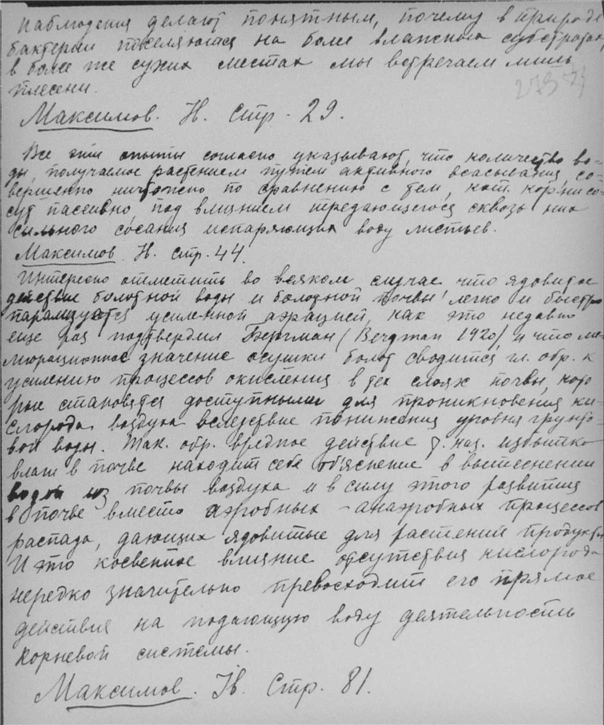 наблюдения делают понятным, почему в природе
бактерии поселяются на более влажных субстратах,
в более же сухих местах мы встречаем лишь
плесени.
Максимов. Н. стр. 29.
Все эти опыты согласно указывают, что количество во-
ды, получаемое растением путем активного всасывания, со-
вершенно ничтожно по сравнению с тем, кот. корни со-
сут пассивно под влиянием передающегося сквозь них
сильного сосания испаряющих воду листьев.
Максимов. Н. стр. 44.
Интересно отметить во всяком случае что ядовитое
действие болотной воды и болотной почвы легко и быстро
парализуется усиленной аэрацией, как это недавно
еще раз подтвердил Бергман /Bergman 1920/ и что ме-
лиорационное значение осушки болот сводится гл. обр. к
усилению процессов окисления в тех слоях почвы, кото
рые становятся доступными для проникновения ки-
слорода воздуха вследствие понижения уровня грунто-
вой воды. Так. обр. вредное действие т. наз. избытка
влаги в почве находит себе об'яснение в вытеснении
водою из почвы воздуха и в силу этого развития
в почве вместо аэробных - анаэробных процессов
распада, дающих ядовитые для растений продукты
И это косвенное влияние отсутствия кислорода
нередко значительно превосходит его прямое
действие на подающую воду деятельность
корневой системы.
Максимов. Н. Стр. 81.